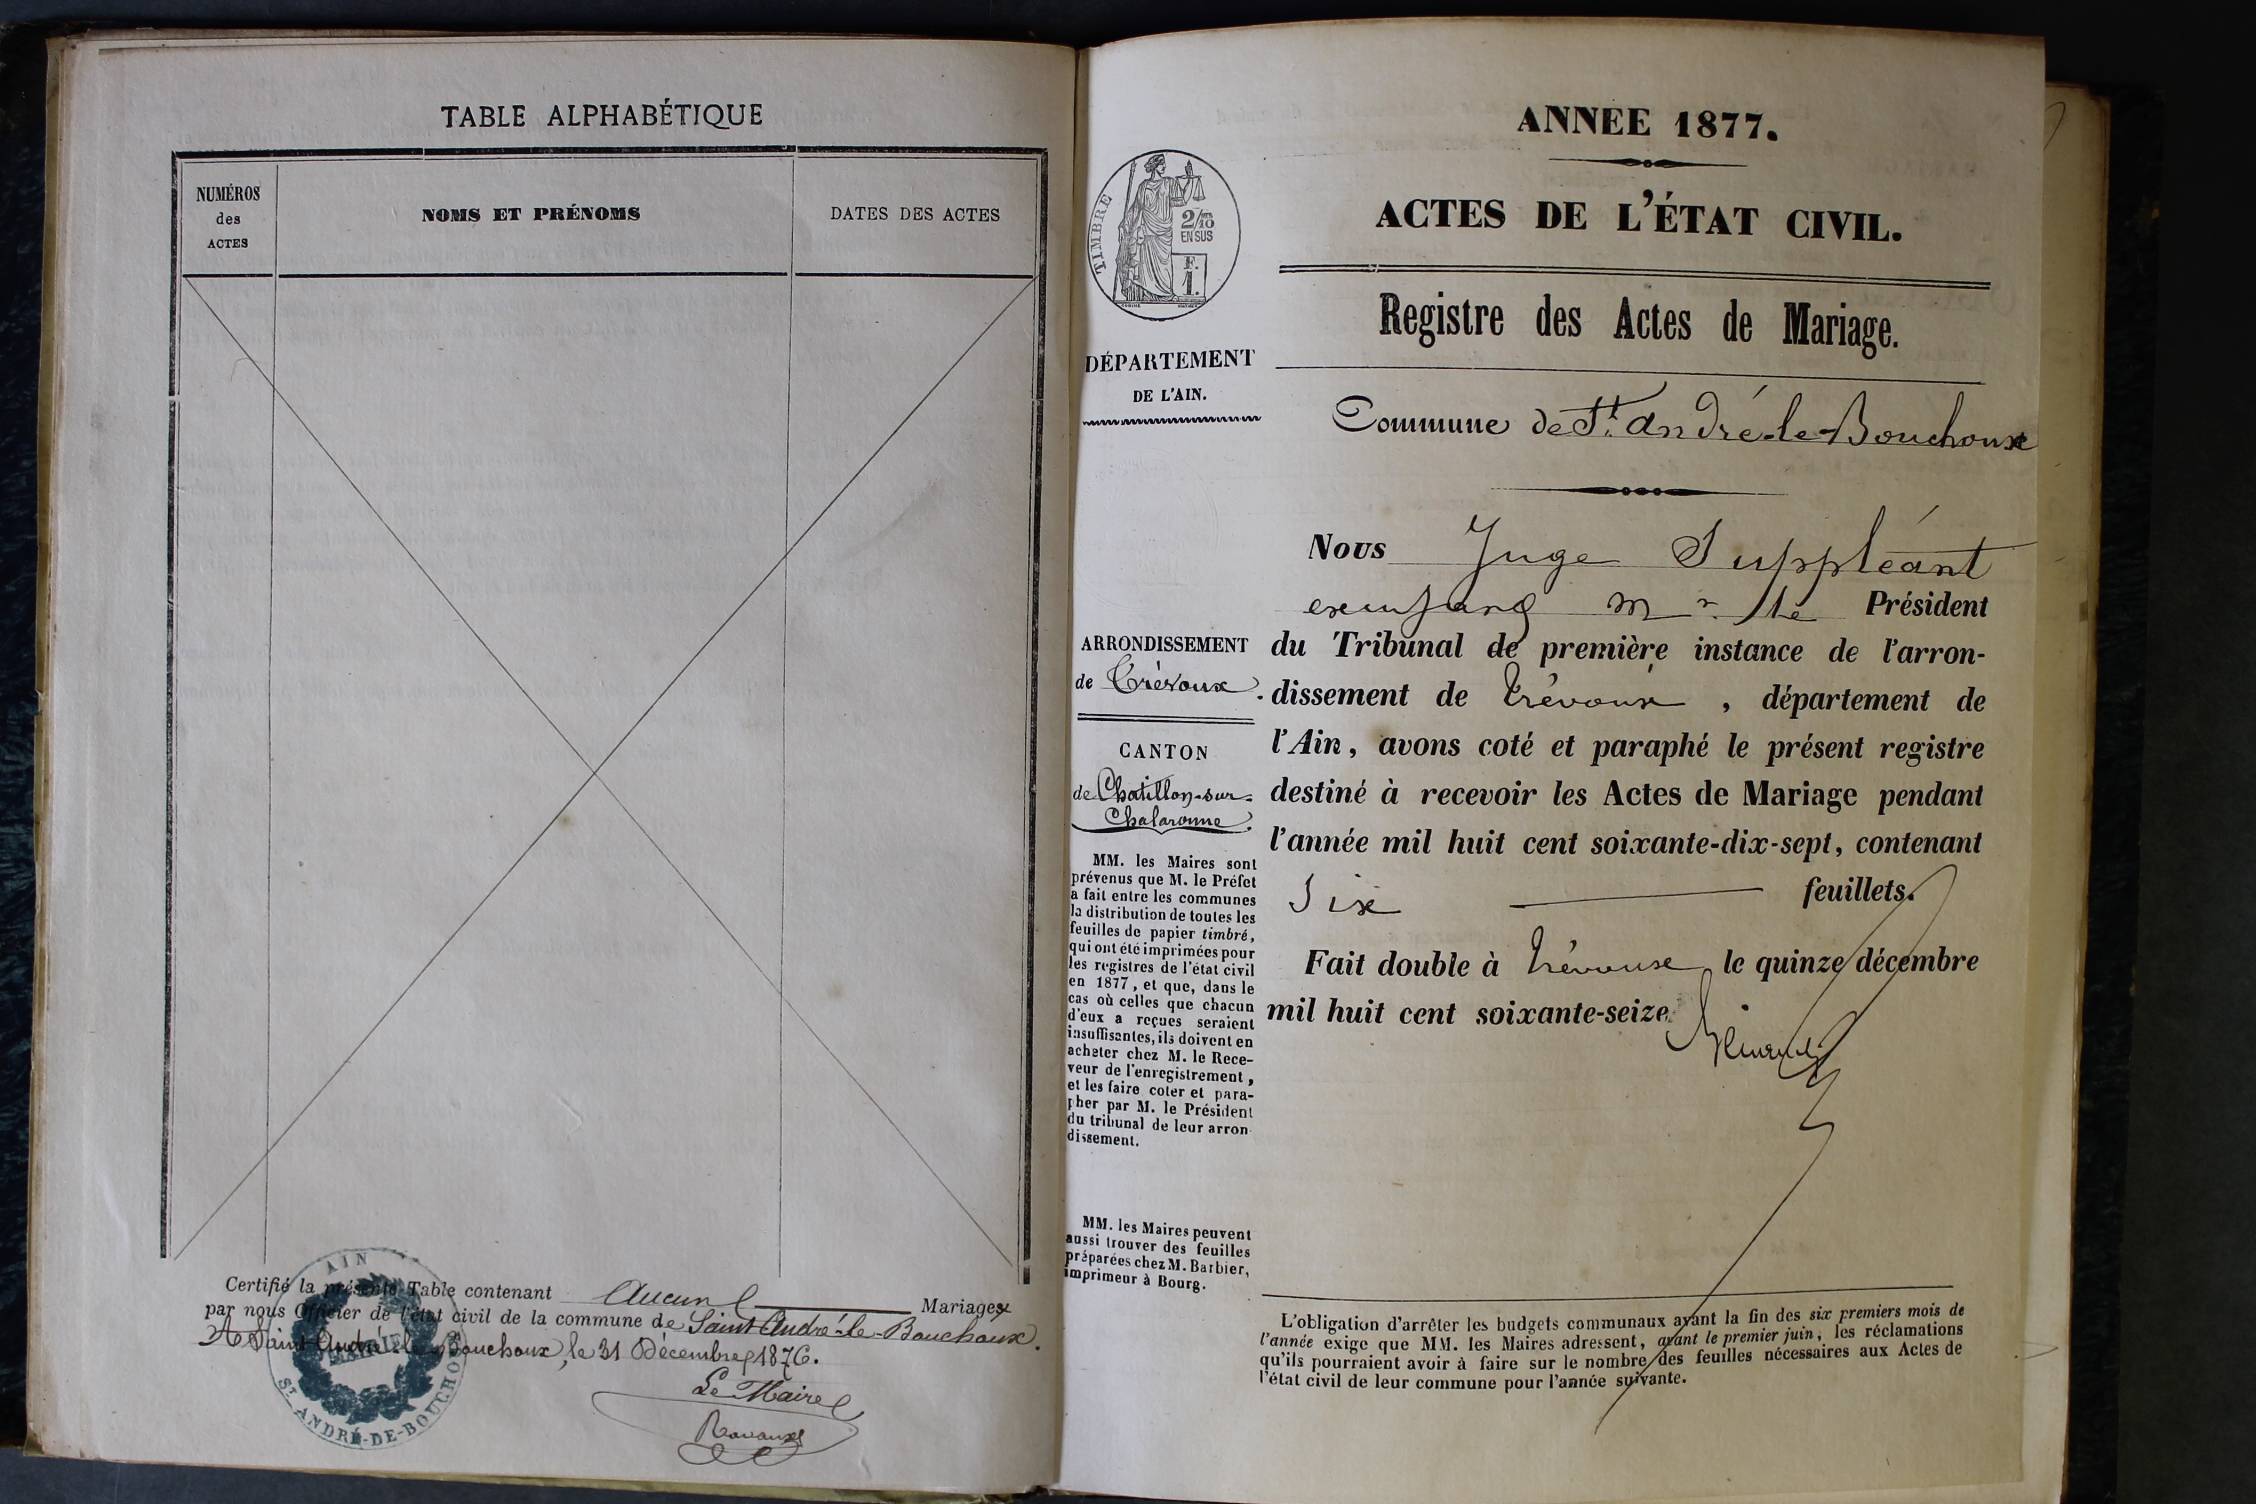 TABLE ALPHABÉTIQUE
NUMÉROS
des
ACTES
NOMS ET PRÉNOMS
DATES DES ACTES
Certifié la présente Table contenant Aucun Mariages
par nous Officier de l'état civil de la commune de Saint André-le-Bouchoux.
A Saint André-le-Bouchoux, le 31 Décembre 1876.
Le Maire
AIN
MAIRIE
ST ANDRÉ-DE-BOUCHOUX
ANNEE 1877.
ACTES DE L'ÉTAT CIVIL.
Registre des Actes de Mariage.
Commune de St. André-le-Bouchoux
TIMBRE
2/10
EN SUS
F.
1.
DÉPARTEMENT
DE L'AIN.
ARRONDISSEMENT
de Trévoux.
CANTON
de Chatillon-sur-
Chalaronne
MM. les Maires sont
prévenus que M. le Préfet
a fait entre les communes
la distribution de toutes les
feuilles de papier timbré,
qui ont été imprimées pour
les registres de l'état civil
en 1877, et que, dans le
cas où celles que chacun
d'eux a reçues seraient
insuffisantes, ils doivent en
acheter chez M. le Rece-
veur de l'enregistrement,
et les faire coter et para-
pher par M. le Président
du tribunal de leur arron-
dissement.
MM. les Maires peuvent
aussi trouver des feuilles
préparées chez M. Barbier,
imprimeur à Bourg.
Nous Juge Suppléant
Mr le Président
du Tribunal de première instance de l'arron-
dissement de Trévoux, département de
l'Ain, avons coté et paraphé le présent registre
destiné à recevoir les Actes de Mariage pendant
l'année mil huit cent soixante-dix-sept, contenant
Six feuillets.
Fait double à Trévoux, le quinze décembre
mil huit cent soixante-seize.
L'obligation d'arrêter les budgets communaux avant la fin des six premiers mois de
l'année exige que MM. les Maires adressent, avant le premier juin, les réclamations
qu'ils pourraient avoir à faire sur le nombre des feuilles nécessaires aux Actes de
l'état civil de leur commune pour l'année suivante.